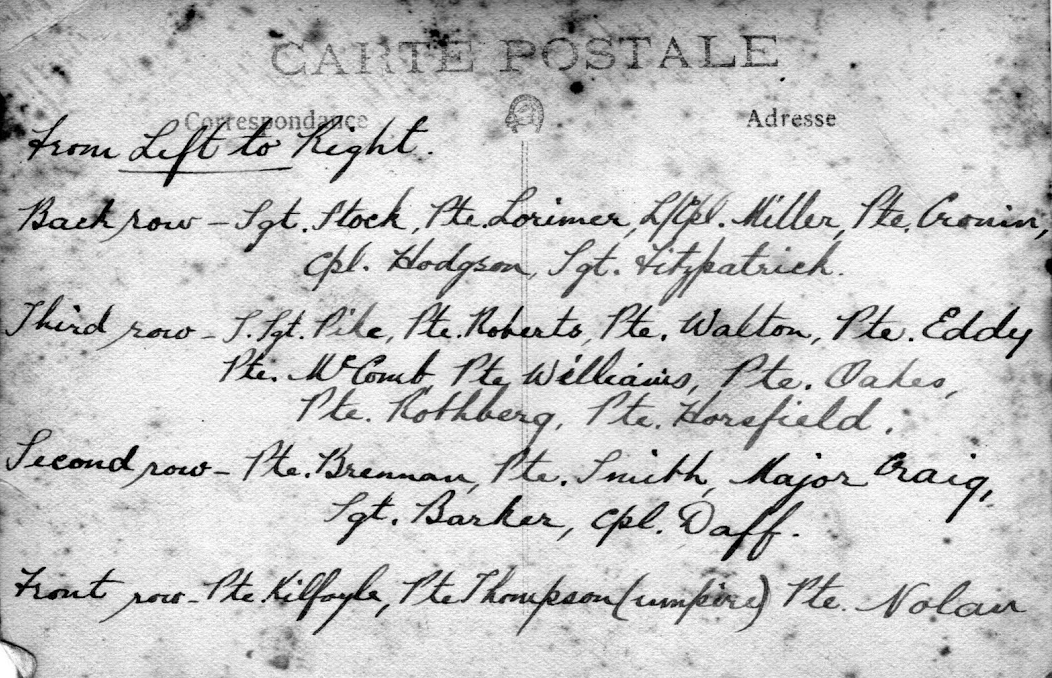 CARTE POSTALE
Correspondance Adresse
From Left to Right.
Back row - Sgt. Stock, Pte. Lorimer, L/Cpl. Miller, Pte. Cronin,
Cpl. Hodgson, Sgt. Fitzpatrick.
Third row - S. Sgt. Pike, Pte. Roberts, Pte. Walton, Pte. Eddy
Pte. McComb, Pte. Williams, Pte. Oakes,
Pte. Rothberg, Pte. Horsfield.
Second row - Pte. Brennan, Pte. Smith, Major Craig,
Sgt. Barker, Cpl. Daff.
Front row - Pte Kilfoyle, Pte Thompson (umpire) Pte. Nolan